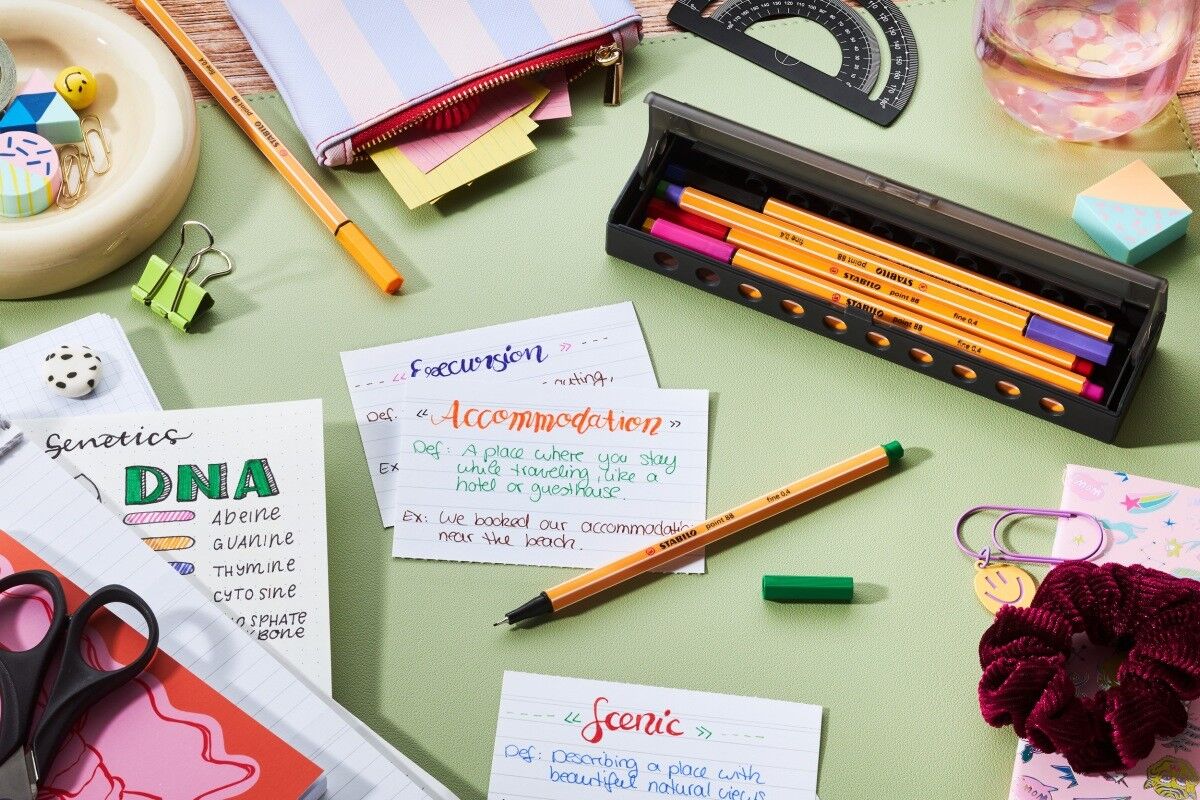 STABILO point 88
Genetics
DNA
Abeine
Guanine
Thymine
Cytosine
bone
« Excursion »
Def.
Ex
« Accommodation »
Def: A place where you stay
while traveling, like a
hotel or guesthouse.
Ex: We booked our accommodatio
near the beach.
STABILO point 88 fine 0,4
fine 0,4
STABILO point 88 fine 0,4
STABILO point 88 fine 0,4
« Scenic »
Def: Describing a place with
beautiful natural views
MOM
MOM